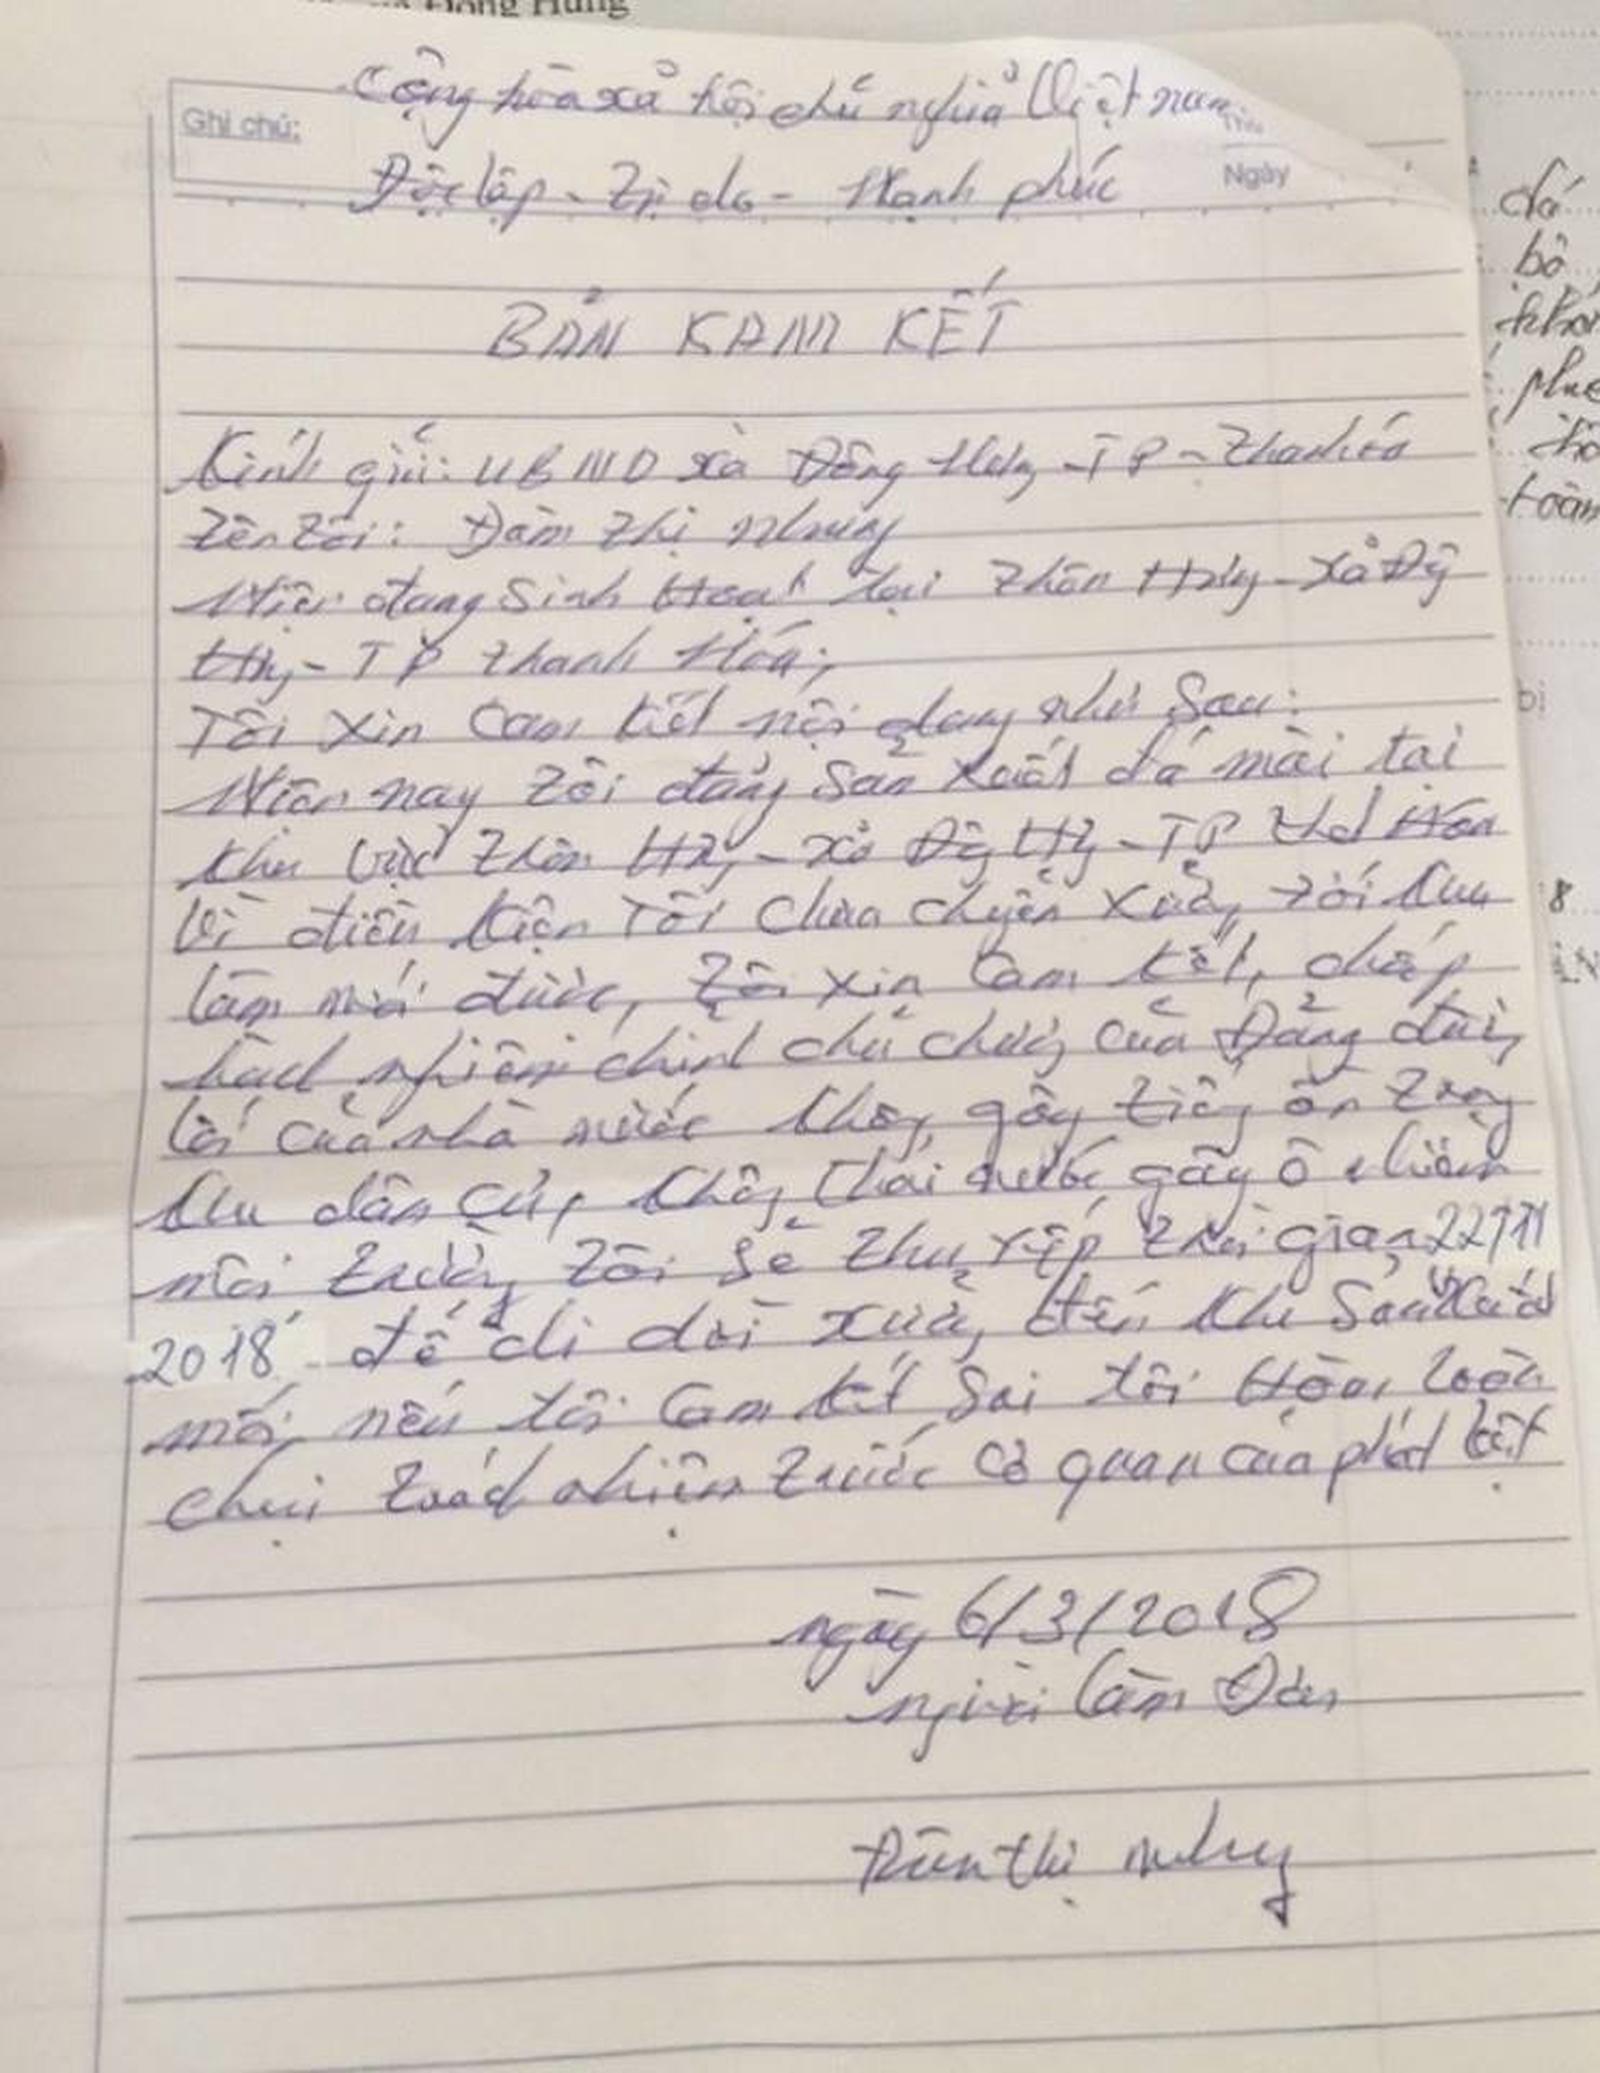 Đông Hưng
Cộng hòa xả hội chủ nghĩả Việt nam
Ghi chú:
Độc lập - Tự do - Hạnh phúc
Ngày
BẢN KAM KẾT
Kính gửi: UBND xà Đông Hưng - TP - Thanh hóa
Tên Tôi: Đàm Thị Nhung
Hiện đang Sinh Hoạt tại Thôn - Xả
- TP Thanh Hóa;
Tôi Xin Cam kết nội dung như Sau:
Hiện nay Tôi đang Sản Xuất đá mài tại
khu Vực Thôn - Xả - TP
Vì điều kiện Tôi Chưa chuyển Xưởng tới khu
làm mới được, Tôi Xin Cam kết, chấp
hành nghiêm chỉnh chủ chương của Đảng đường
lối của nhà nước không gây tiếng ồn trong
khu dân cư, không thải nước gây ô nhiễm
môi trường Tôi Sẽ Thu xếp thời gian
2018 để di dời xưởng đến khu Sản Xuất
mới, nếu tôi Cam kết Sai tôi Hoàn toàn
chịu trách nhiệm trước cơ quan của pháp luật
ngày 6/3/2018
người làm Đơn
Đàm thị nhung
đá
bộ
toàn
8